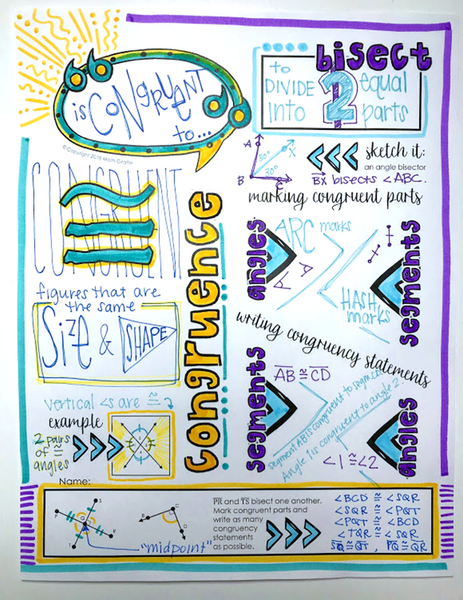 is CONgRUENT
to...
© Copyright 2018 Math Giraffe
bisect
to
DIVIDE
into
2
equal
parts
sketch it:
an angle bisector
BX bisects <ABC.
A
X
B
C
30°
30°
CONGRUENT
figures that are
the same
Size & SHAPE
vertical <s are ≅
example
2 pairs
of ≅
angles
congruence
marking congruent parts
angles
ARC marks
HASH
marks
segments
writing congruency statements
segments
AB ≅ CD
segment AB is congruent to segment CD
Angle 1 is congruent to angle 2.
<1 ≅ <2
angles
Name:
"midpoint"
PR and TS bisect one another.
Mark congruent parts and
write as many
congruency
statements
as possible.
<BCD ≅ <SQR
<SQR ≅ <PQT
<PQT ≅ <BCD
<TQR ≅ <SQR
SQ ≅ QT , PQ ≅ QR